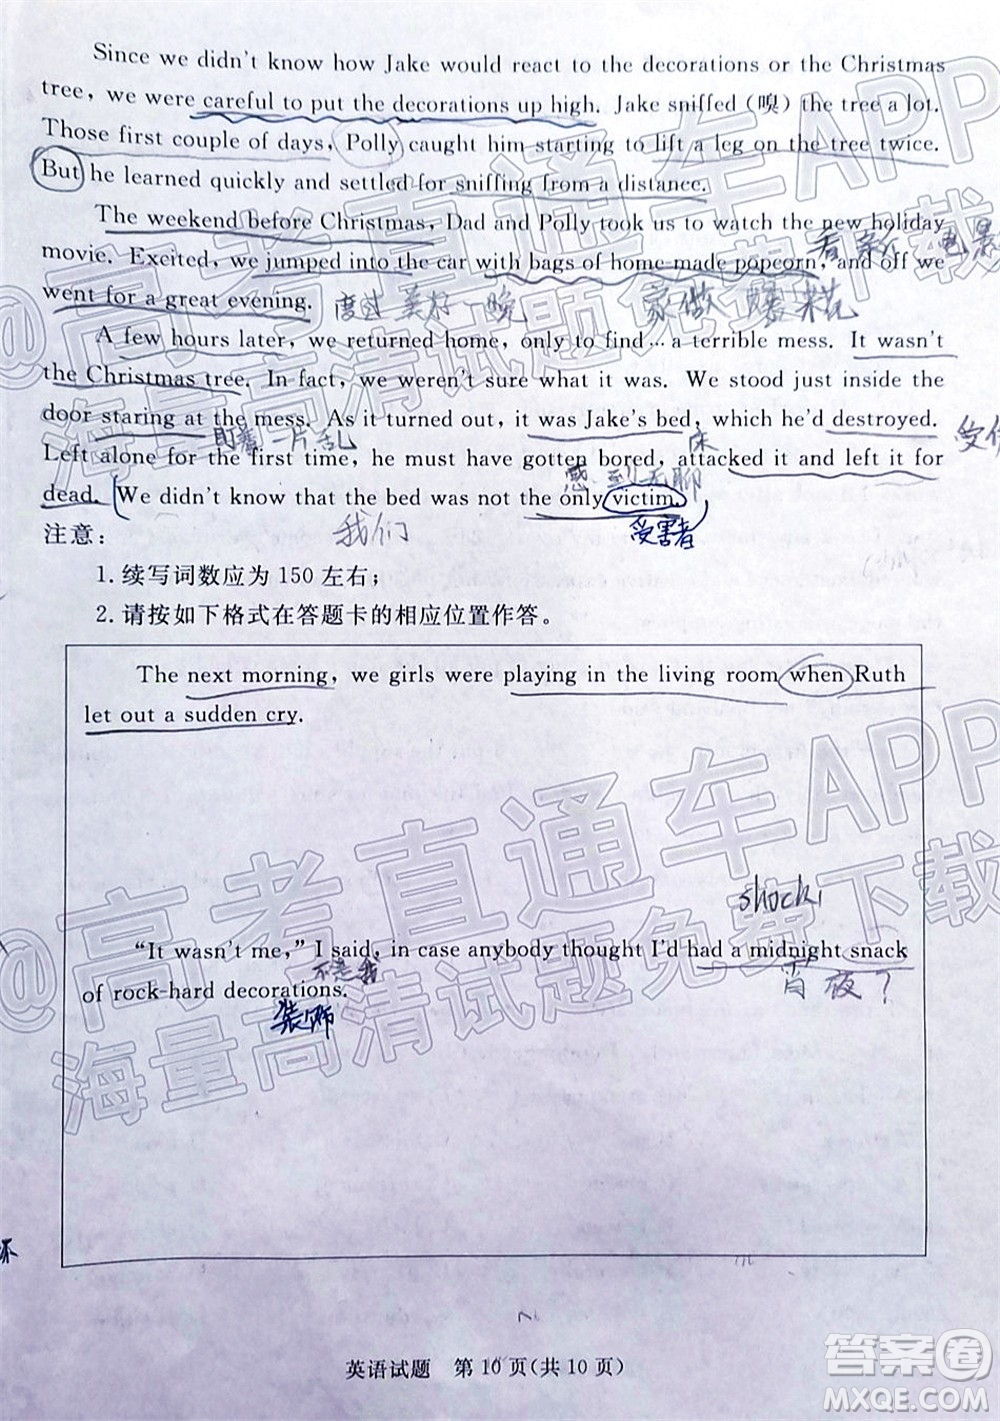 Since we didn't know how Jake would react to the decorations or the Christmas
tree, we were careful to put the decorations up high. Jake sniffed (嗅) the tree a lot.
Those first couple of days, Polly caught him starting to lift a leg on the tree twice.
But he learned quickly and settled for sniffing from a distance.
The weekend before Christmas, Dad and Polly took us to watch the new holiday
看新 电影
movie. Excited, we jumped into the car with bags of home-made popcorn, and off we
went for a great evening. 度过美好一晚 家做 爆米花
A few hours later, we returned home, only to find… a terrible mess. It wasn't
the Christmas tree. In fact, we weren't sure what it was. We stood just inside the
door staring at the mess. As it turned out, it was Jake's bed, which he'd destroyed.
盯着一片乱 床
Left alone for the first time, he must have gotten bored, attacked it and left it for
感到无聊
dead. We didn't know that the bed was not the only victim.
注意： 我们 受害者
1. 续写词数应为 150 左右；
2. 请按如下格式在答题卡的相应位置作答。
The next morning, we girls were playing in the living room when Ruth
let out a sudden cry.
"It wasn't me," I said, in case anybody thought I'd had a midnight snack
不是我 宵夜？
of rock-hard decorations.
装饰
英语试题 第 10 页(共 10 页)
@高考直通车APP
海量高清试题免费下载
@高考直通车APP
海量高清试题免费下载
答案圈
MXQE.COM